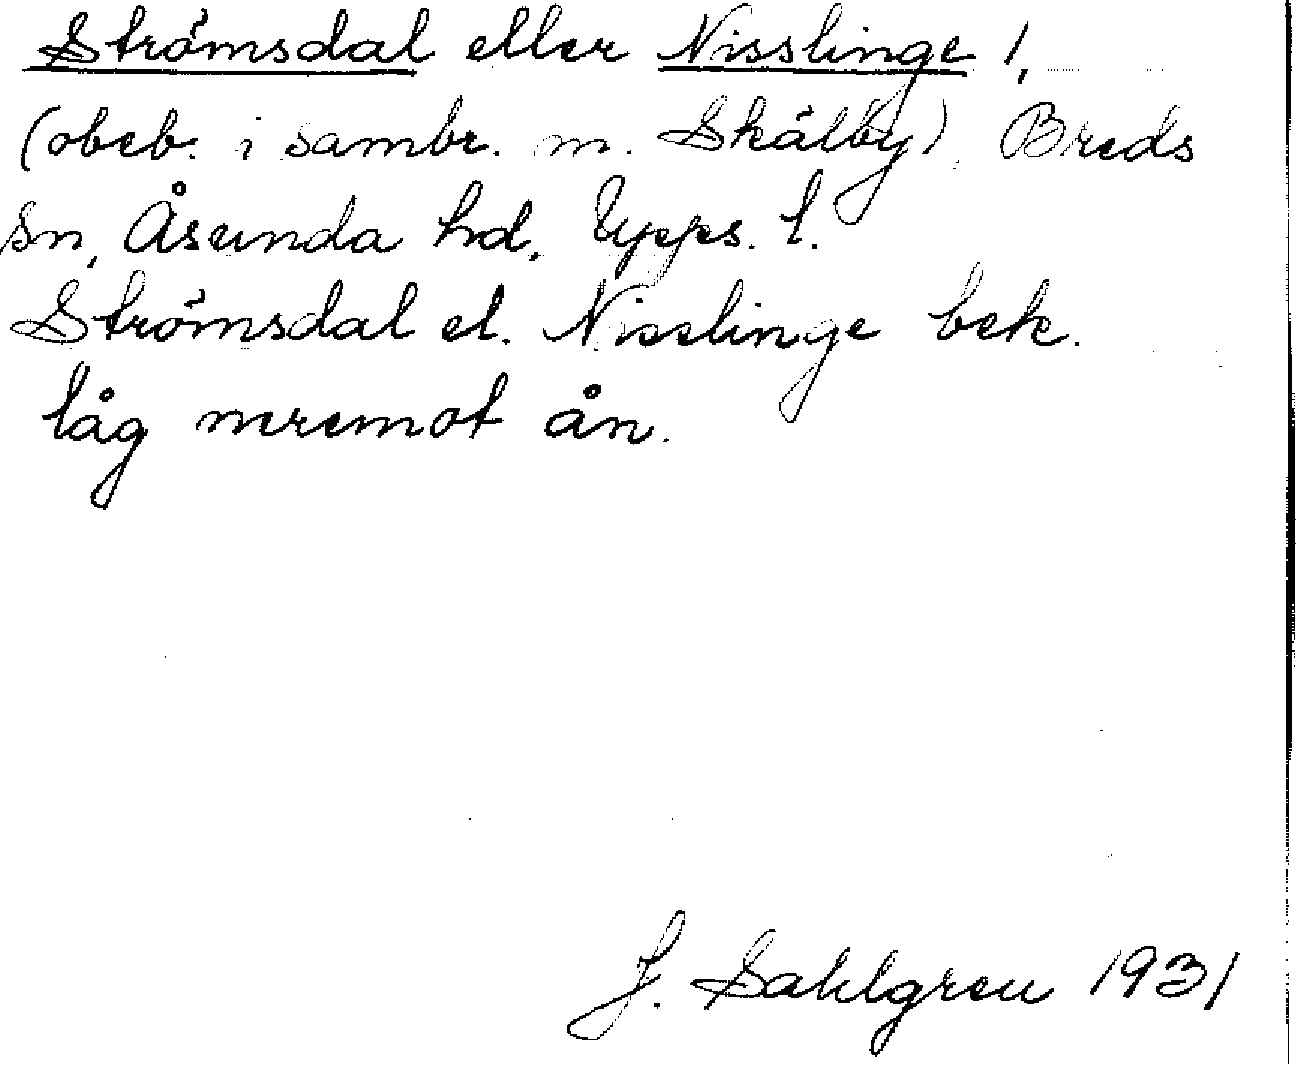 Strömsdal eller Nisslinge l,
(obeb. i sambr. m. Skälby), Breds
sn, Åsunda hd, Upps. l.
Strömsdal el. Nisslinge bek.
låg neremot ån.
J. Sahlgren 1931